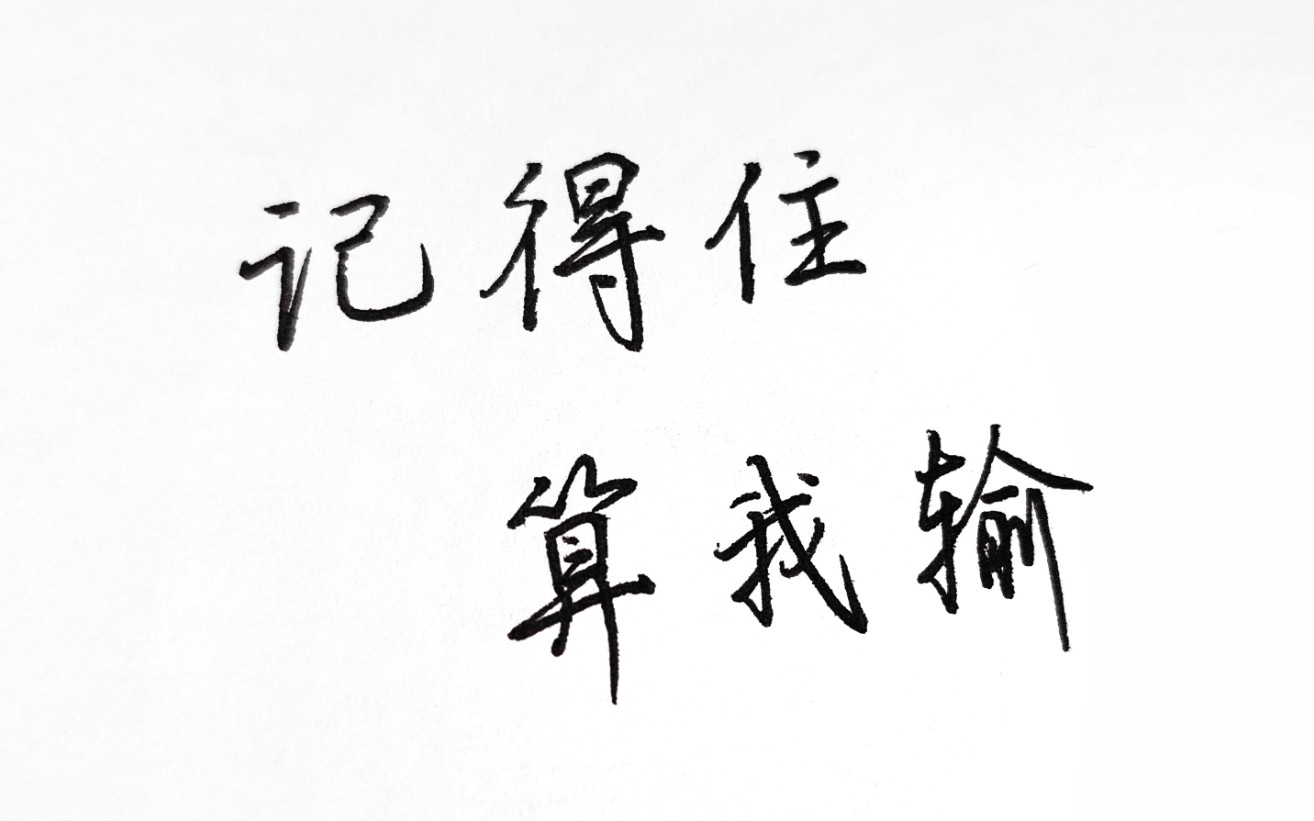 记得住
算我输